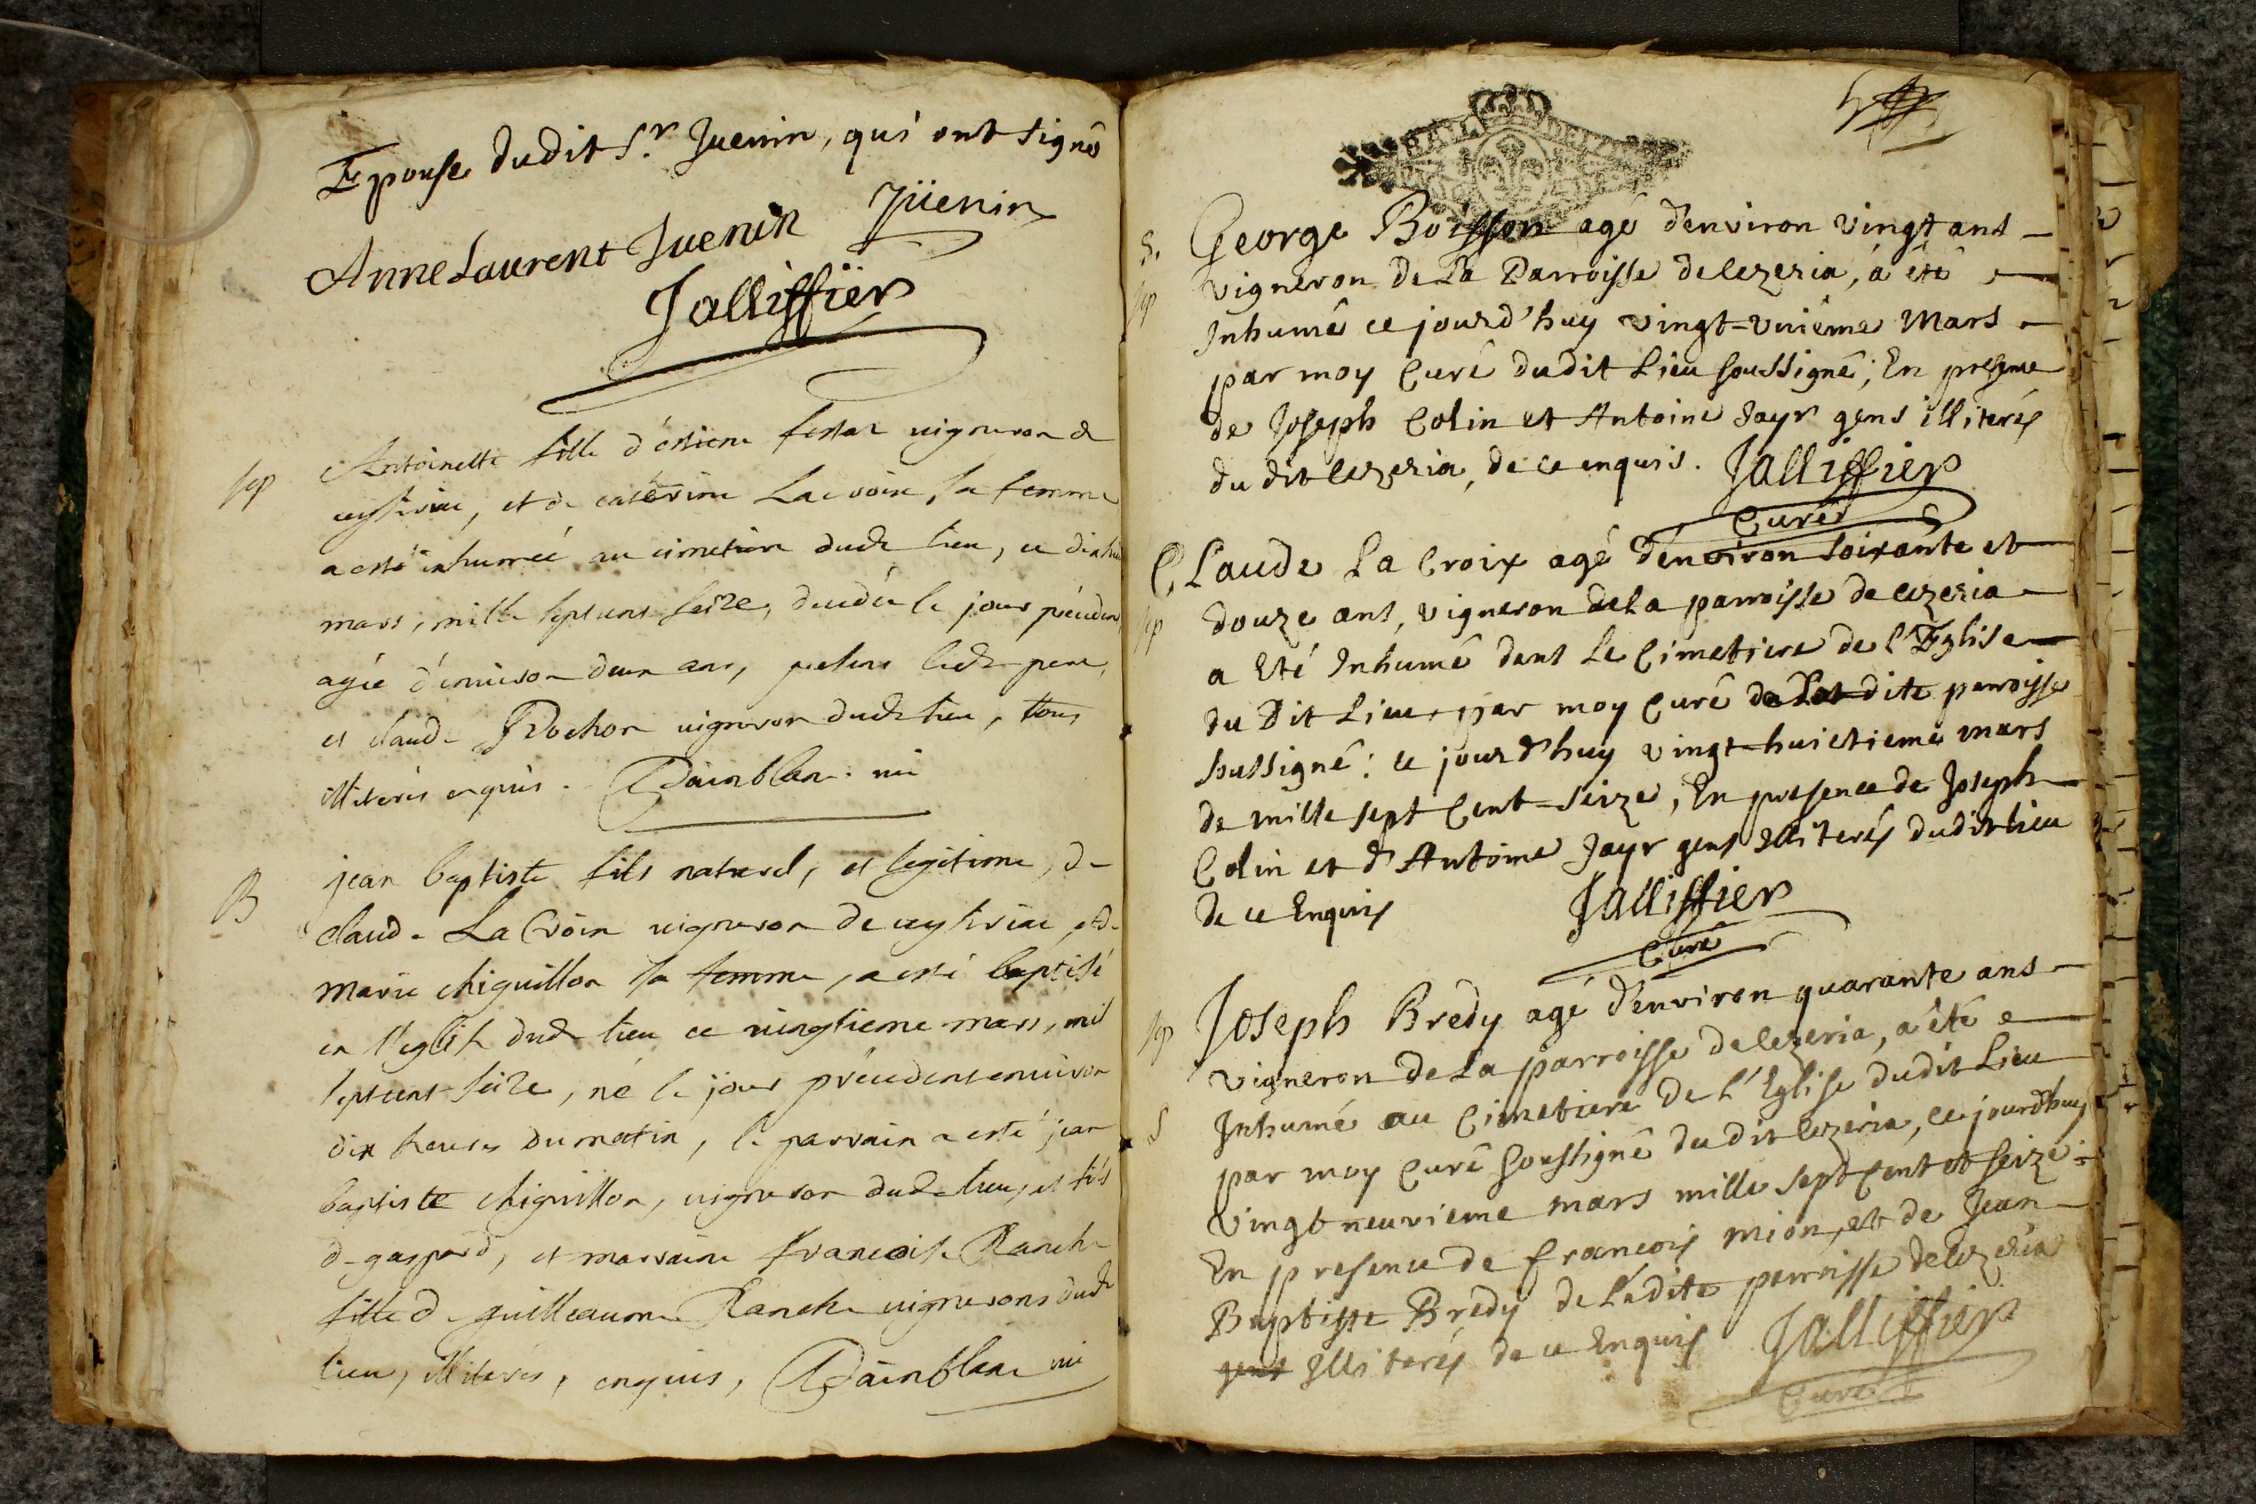 Epouse dudit S.r Juenin, qui ont signé
Anne Laurent Juenin Jüenin
Jalliffier
sep Antoinette fille d'estiene festaz vigneron de
ceyzeriac, et de caterine Lacroix, sa femme
a esté inhumée au cimetiere dudt lieu, ce dixhuit
mars, mille septcens seize, decedée le jour précedent
agée d'environ deux ans, presens ledt pere,
et claude Rochon vigneron dudt lieu, tous
illiterés enquis.
B jean baptiste fils naturel, et legitime, de
claude La Croix vigneron de ceyzeriac, et de
marie chiguillon sa femme, a esté baptisé
en l'eglise dudt lieu ce vingtieme mars, mil
septcens-seize, né le jour précedent environ
dix heures du matin, le parrain a esté jean
baptiste chiguillon, vigneron dudt lieu, et fils
de gaspard, et marraine francoise Ranche
fille de guilleaume Ranche vignerons dudt
lieu, illiterés, enquis,
S. George Boisson agé d'environ vingt ans
sep vigneron de La Parroisse de cezeria, a été
Inhumé ce jourd'huy vingt-unième Mars
par moy Curé dudit Lieu soussigné; En presence
de Joseph Colin et Antoine Jayr gens illiterés
du dit cezeria, de ce enquis. Jalliffier
Curé
CLaude La Croix agé d'environ soixante et
sep douze ans, vigneron de La parroisse de cezeria
a Eté Inhumé dans Le Cimetiere de l'Eglise
du Dit Lieu, par moy Curé de La dite parroisse
sussigné: ce jourd'huy vingt-huictieme mars
de mille sept Cent-seize, En presence de Joseph
Colin et d'Antoine Jayr gens Illiterés dudit lieu
de ce Enquis Jalliffier
Curé
sep Joseph Bredy agé d'environ quarante ans
vigneron de La parroisse de cezeria, a été
S Inhumé au Cimetiere de l'Eglise dudit Lieu
par moy Curé soussigné du dit cezeria, ce jourd'huy
vingt neuvieme mars mille sept Cent et seize
En presence de francois mion, et de Jean
Baptiste Bredy de La dite parroisse de cezeria
gens Illiterés de ce Enquis Jalliffier
Curé